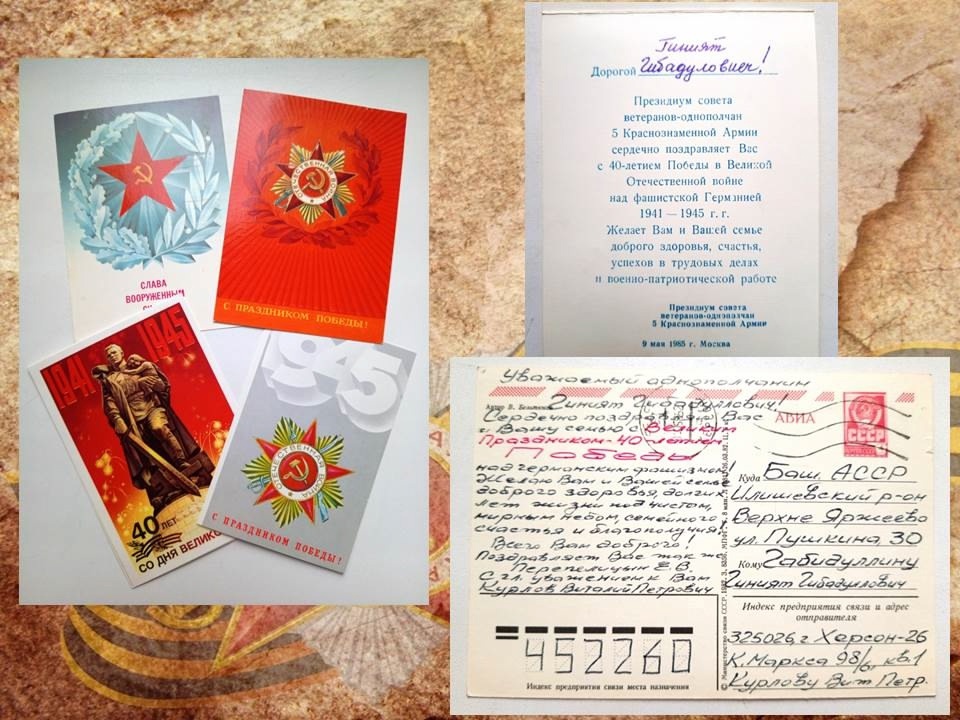 СЛАВА
ВООРУЖЕННЫМ
С ПРАЗДНИКОМ ПОБЕДЫ!
ОТЕЧЕСТВЕННАЯ ВОЙНА
1941 1945
40 ЛЕТ
СО ДНЯ ВЕЛИКО
945
ОТЕЧЕСТВЕННАЯ ВОЙНА
С ПРАЗДНИКОМ ПОБЕДЫ!
Гиният
Дорогой Гибадулович!
Президиум совета
ветеранов-однополчан
5 Краснознаменной Армии
сердечно поздравляет Вас
с 40-летием Победы в Великой
Отечественной войне
над фашистской Германией
1941 — 1945 г. г.
Желает Вам и Вашей семье
доброго здоровья, счастья,
успехов в трудовых делах
и военно-патриотической работе
Президиум совета
ветеранов-однополчан
5 Краснознаменной Армии
9 мая 1985 г. Москва
Уважаемый однополчанин
Гиният Гибадулович!
Сердечно поздравляю Вас
и Вашу семью с Великим
Праздником - 40-летием
Победы
над германским фашизмом!
Желаю Вам и Вашей семье
доброго здоровья, долгих
лет жизни под чистым,
мирным небом, семейного
счастья и благополучия!
Всего Вам доброго!
Поздравляет Вас также
Перепелицын Е.В.
С гл. уважением к Вам
Курлов Виталий Петрович
452260
Индекс предприятия связи места назначения
АВИА
СССР
Куда Баш. АССР
Илишевский р-он
Верхне Яркеево
ул. Пушкина, 30
Кому Габидуллину
Гиният Гибадуллович
Индекс предприятия связи и адрес
отправителя
325026, г. Херсон-26
К. Маркса 98/61 кв. 1
Курлову Вит. Петр.